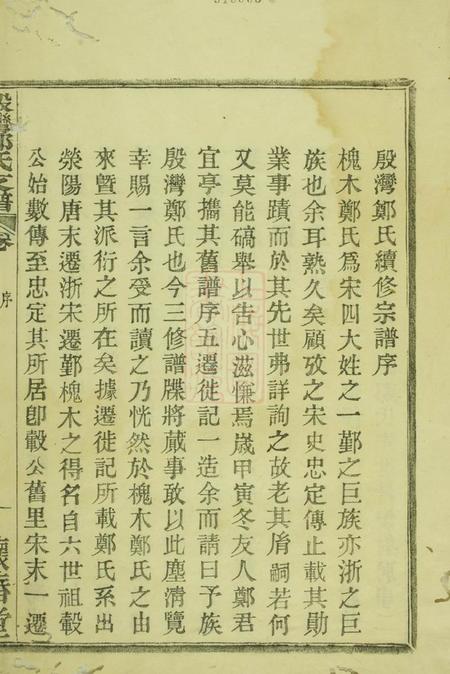 殷灣鄭氏續修宗譜序
槐木鄭氏爲宋四大姓之一鄞之巨族亦浙之巨
族也余耳熟久矣顧攷之宋史忠定傳止載其勛
業事蹟而於其先世弗詳詢之故老其脣嗣若何
又莫能碻舉以告心滋慊焉歲甲寅冬友人鄭君
宜亭攜其舊譜序五遷徙記一造余而請曰予族
殷灣鄭氏也今三修譜牒將蕆事敢以此塵淸覽
幸賜一言余受而讀之乃恍然於槐木鄭氏之由
來曁其派衍之所在矣據遷徙記所載鄭氏系出
滎陽唐末遷浙宋遷鄞槐木之得名自六世祖縠
公始數傳至忠定其所居卽縠公舊里宋末一遷
殷灣鄭氏支譜
卷
序